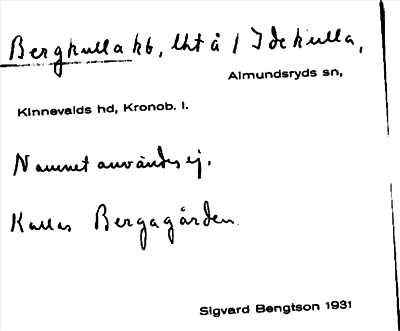 Bergkulla hb, lht å 1 Idekulla,
Almundsryds sn,
Kinnevalds hd, Kronob. l.
Namnet användes ej.
Kallas Bergagården.
Sigvard Bengtson 1931